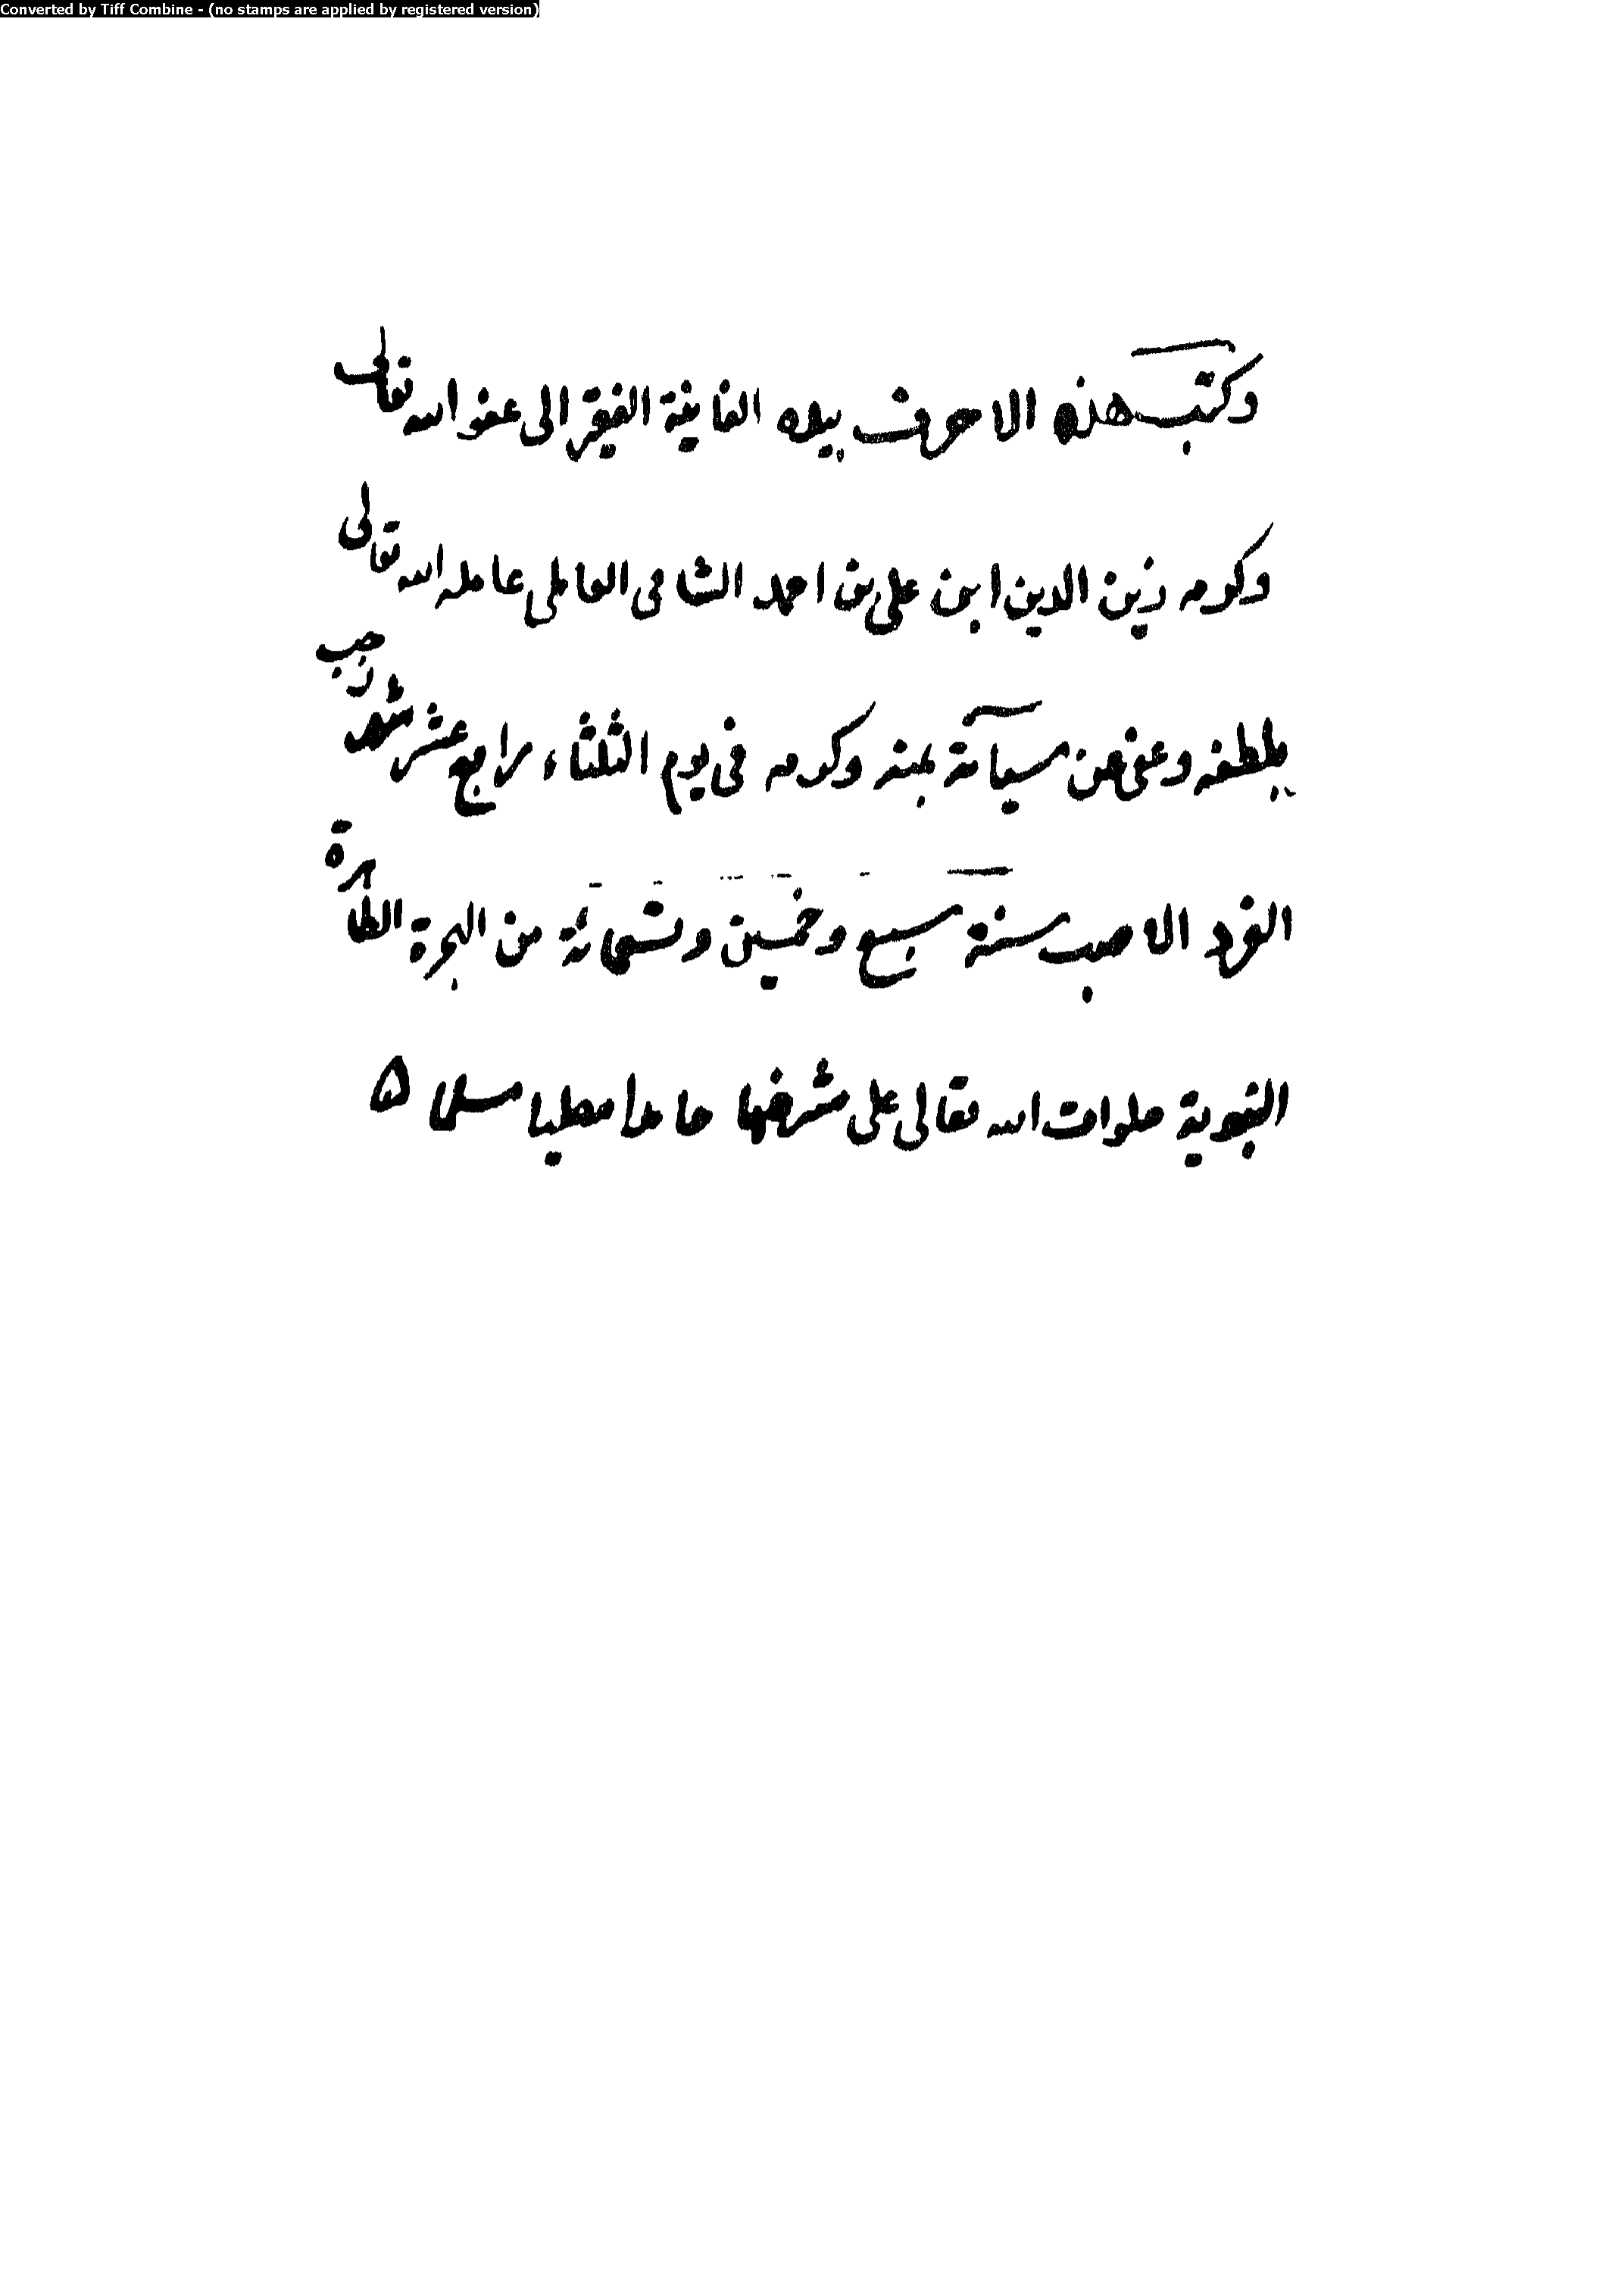 Converted by Tiff Combine - (no stamps are applied by registered version)
وكتب هذه الاحرف بيده الفانية الفقير الى عفو الله تعالى
وكرمه زين الدين ابن علي بن احمد الشامي العاملي عامله الله تعالى
بلطفه وعفى عن سيآته بمنه وكرمه في يوم الثلثاء رابع عشر شهر رجب
الفرد الاصب سنة سبع وخمسين وتسعمائة من الهجرة الطاهرة
النبوية صلوات الله تعالى على مشرفها حامدا مصليا مسلما ۵